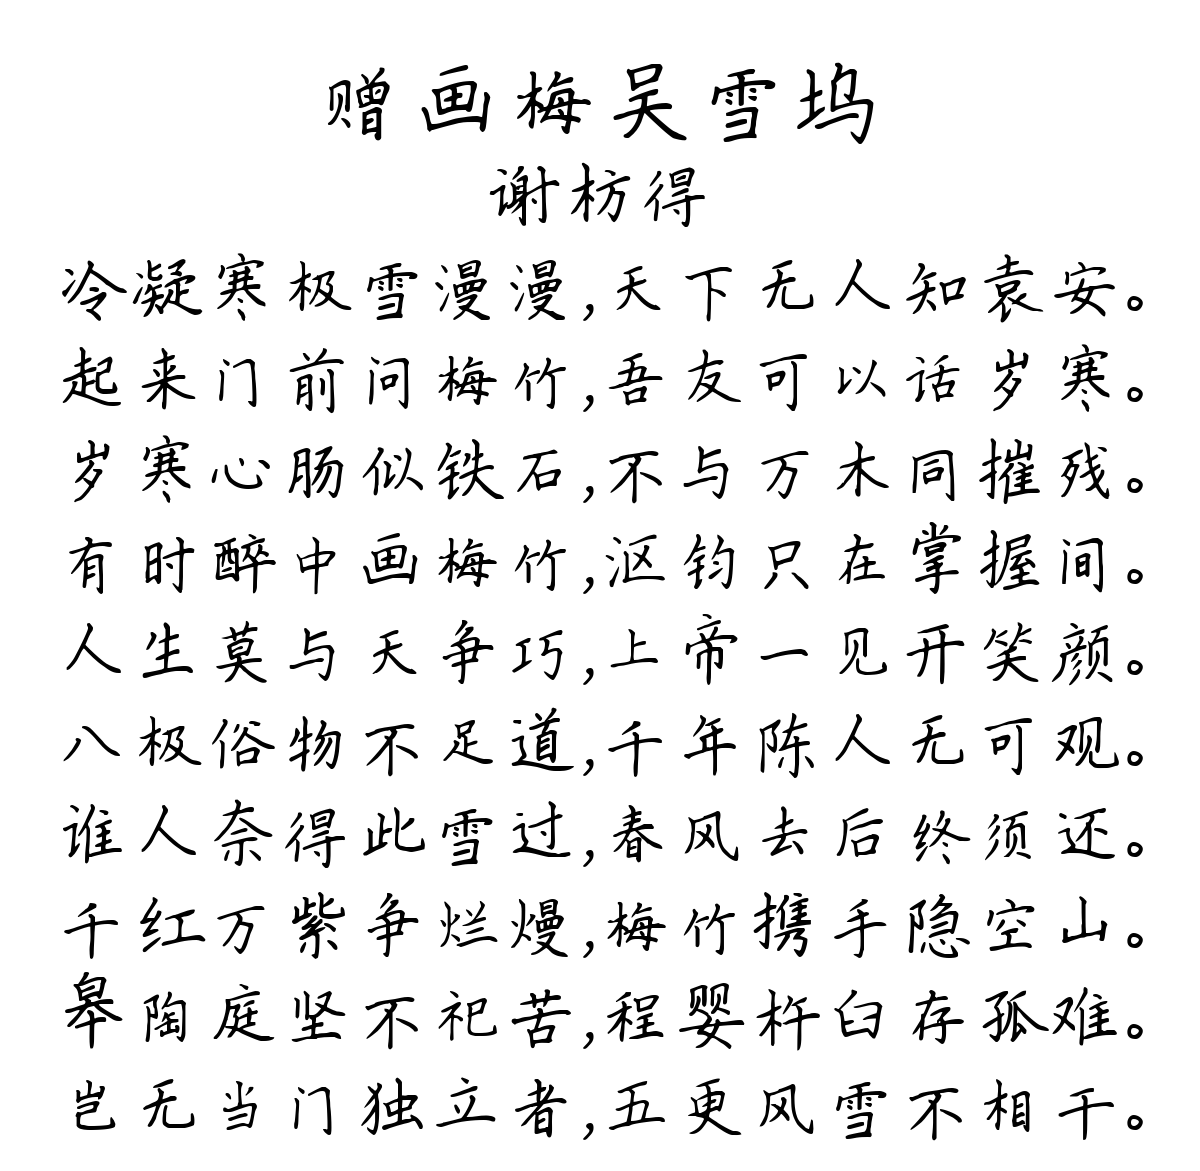 赠画梅吴雪坞
谢枋得
冷凝寒极雪漫漫,天下无人知袁安。
起来门前问梅竹,吾友可以话岁寒。
岁寒心肠似铁石,不与万木同摧残。
有时醉中画梅竹,沤钧只在掌握间。
人生莫与天争巧,上帝一见开笑颜。
八极俗物不足道,千年陈人无可观。
谁人奈得此雪过,春风去后终须还。
千红万紫争烂熳,梅竹携手隐空山。
皋陶庭坚不祀苦,程婴杵臼存孤难。
岂无当门独立者,五更风雪不相干。